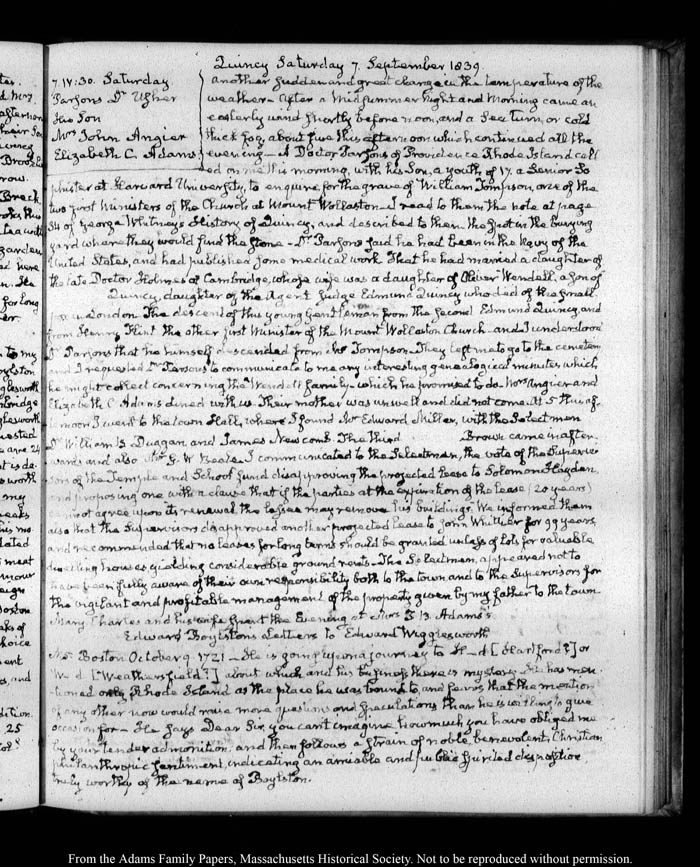 Quincy Saturday 7. September 1839.
7. IV:30. Saturday
Parsons Dr Usher
His Son
Mrs John Angier
Elizabeth C. Adams
another sudden and great change in the temperature of the
weather - After a Midsummer Night and Morning came an
easterly wind shortly before noon, and a Sea turn, or cold
thick fog, about five this afternoon which continued all the
evening - A Doctor Parsons of Providence Rhode Island call
ed on me this morning, with his Son, a youth, of 17. a Senior So
phister at Harvard University, to enquire for the grave of William Tompson, one of the
two first Ministers of the Church at Mount Wollaston - I read to them the note at page
34 of George Whitney's History of Quincy, and described to them the Spot in the burying
yard where they would find the Stone - Dr Parsons said he had been in the Navy of the
United States, and had published some medical work. That he had married a daughter of
the late Doctor Holmes of Cambridge, whose wife was a daughter of Oliver Wendell, a Son of
Quincy, daughter of the Agent Judge Edmund Quincy who died of the Small
pox in London. The descent of this young Gentleman from the Second Edmund Quincy, and
from Henry Flint the other first Minister of the Mount Wollaston Church - and I understood
Dr Parsons that he himself descended from Tompson - They left me to go to the cemetery
and I requested Dr Parsons to communicate to me any interesting genealogical minutes which
he might collect concerning the Wendell family - which he promised to do. Mrs Angier and
Elizabeth C. Adams dined with us. Their mother was unwell and did not come. At 5 this af
ternoon I went to the town Hall, where I found Mr Edward Miller, with the Selectmen
Dr William B Duggan and James Newcomb. The third Brown came in after
wards and also Mr G. W. Beale. I communicated to the Selectmen, the vote of the Supervi
sors of the Temple and School fund disapproving the projected lease to Solomon Hayden,
and proposing one with a clause that if the parties at the expiration of the lease (20 years)
cannot agree upon its renewal the lessee may remove his buildings. We informed them
also that the Supervisors disapproved another projected lease to John Whittier for 99 years,
and recommended that no leases for long terms should be granted unless of lots for valuable
dwelling houses yielding considerable ground rents - The Selectmen, appeared not to
have been fully aware of their own responsibility both to the town and to the Supervisors for
the vigilant and profitable management of the property given by my father to the town.
Mary, Charles and his wife spent the Evening at Mrs T. B. Adams's
Edward Boylston's Letters to Edward Wigglesworth
Boston October 9. 1721 - He is going upon a journey to H - d [Hartford?] or
W d. [Weathersfield?] about which and his business there is mystery - He has men
tioned only Rhode Island as the place he was bound to, and fears that the mention
of any other now would raise more questions and speculations than he is willing to give
occasion for - He says Dear Sir, you can't imagine how much you have obliged me
by your tender admonition, and then follows a strain of noble, benevolent, Christian
philanthropic sentiment, indicating an amiable and public spirited disposition
truly worthy of the name of Boylston.
From the Adams Family Papers, Massachusetts Historical Society. Not to be reproduced without permission.